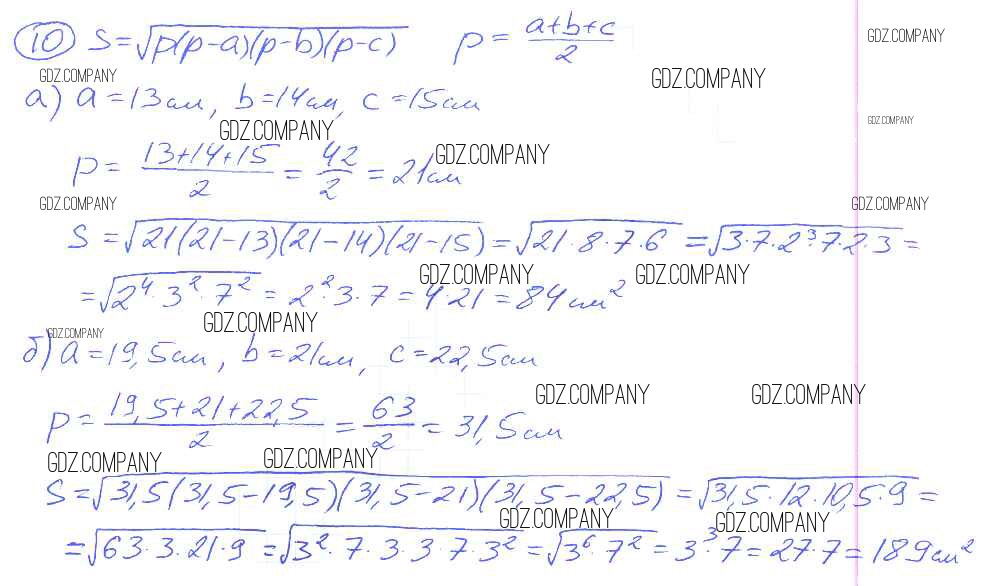 10 S=√p(p-a)(p-b)(p-c) p = (a+b+c)/2
GDZ.COMPANY
GDZ.COMPANY GDZ.COMPANY
а) a=13см, b=14см, c=15см
GDZ.COMPANY
GDZ.COMPANY
p = (13+14+15)/2 = 42/2 = 21см
GDZ.COMPANY
GDZ.COMPANY GDZ.COMPANY
S=√21(21-13)(21-14)(21-15) = √21·8·7·6 = √3·7·2³·7·2·3 =
GDZ.COMPANY GDZ.COMPANY
=√2⁴·3²·7² = 2²·3·7 = 4·21 = 84см²
GDZ.COMPANY
GDZ.COMPANY
б) a=19,5см, b=21см, c=22,5см
GDZ.COMPANY GDZ.COMPANY
p = (19,5+21+22,5)/2 = 63/2 = 31,5см
GDZ.COMPANY GDZ.COMPANY
S=√31,5(31,5-19,5)(31,5-21)(31,5-22,5) = √31,5·12·10,5·9 =
GDZ.COMPANY GDZ.COMPANY
=√63·3·21·9 = √3²·7·3·3·7·3² = √3⁶·7² = 3³·7 = 27·7 = 189см²